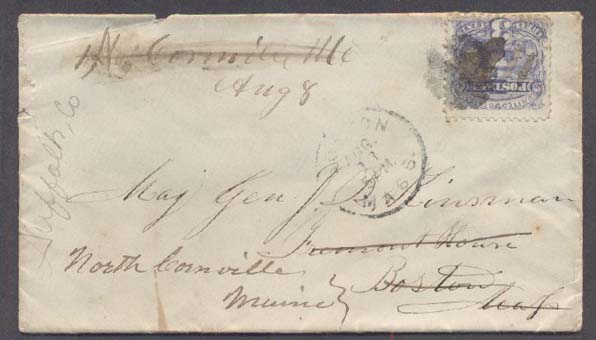 No Cornville Me
Aug 8
POSTAGE
BOSTON
AUG.
11
MASS
Suffolk, Co
Maj Gen J. B. Kinsman
Tremont House
North Cornville
Boston
Maine
Mass